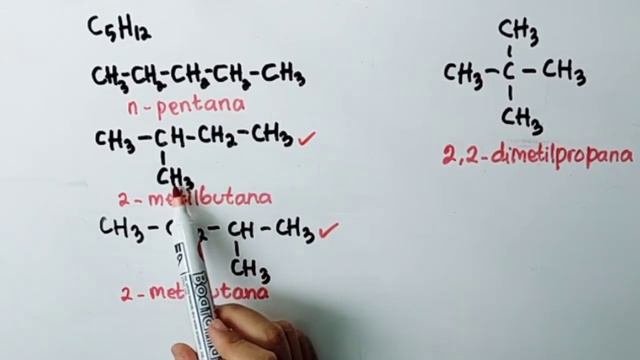 C₅H₁₂
CH₃-CH₂-CH₂-CH₂-CH₃
n-pentana
CH₃-CH-CH₂-CH₃ ✓
CH₃
2-metilbutana
CH₃-C 2-CH-CH₃ ✓
CH₃
2-met butana
CH₃
CH₃-C-CH₃
CH₃
2,2-dimetilpropana